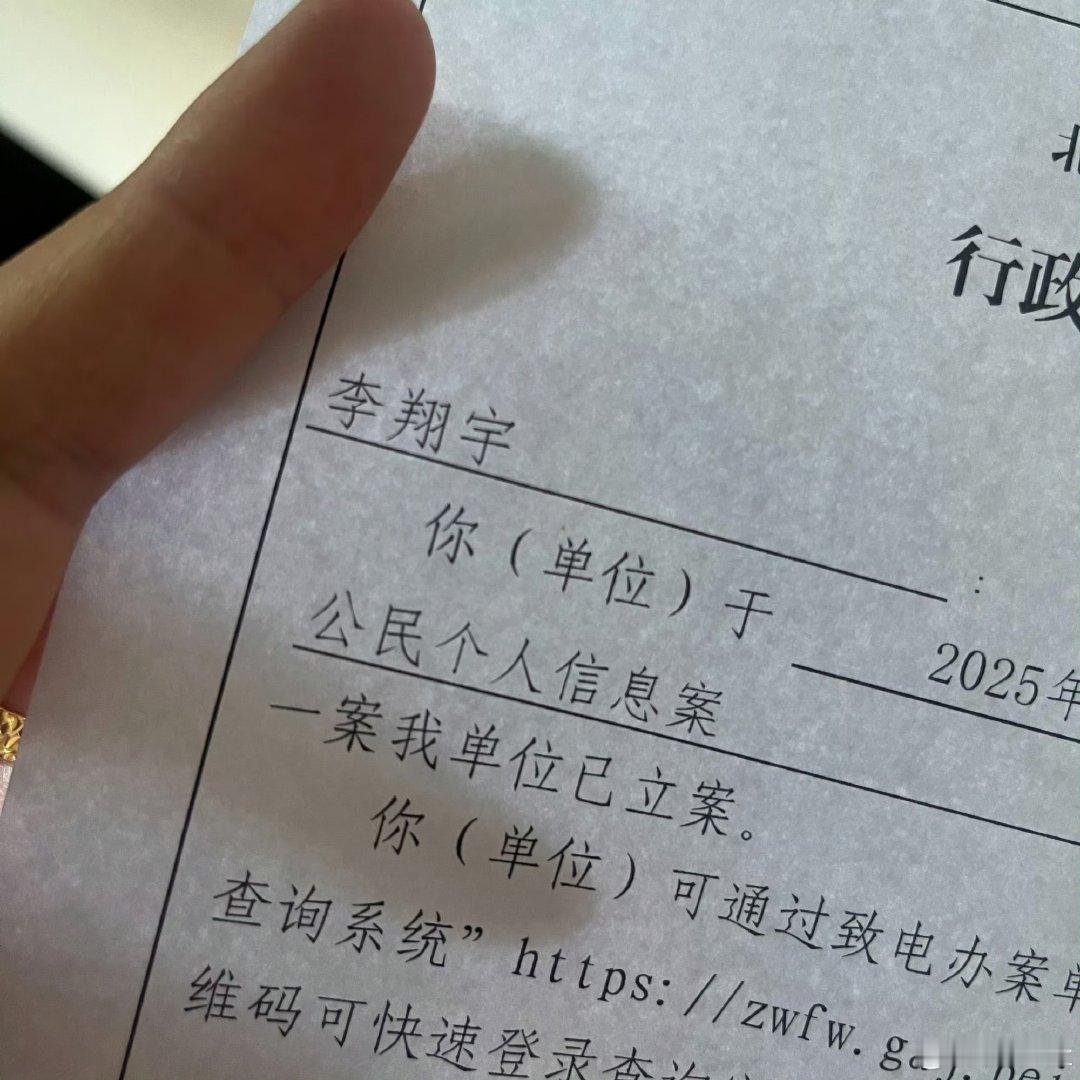 北
行政
李翔宇 :
你（单位）于 2025年
公民个人信息案
一案我单位已立案。
你（单位）可通过致电办案单
查询系统”https://zwfw.gaj.bei
维码可快速登录查询